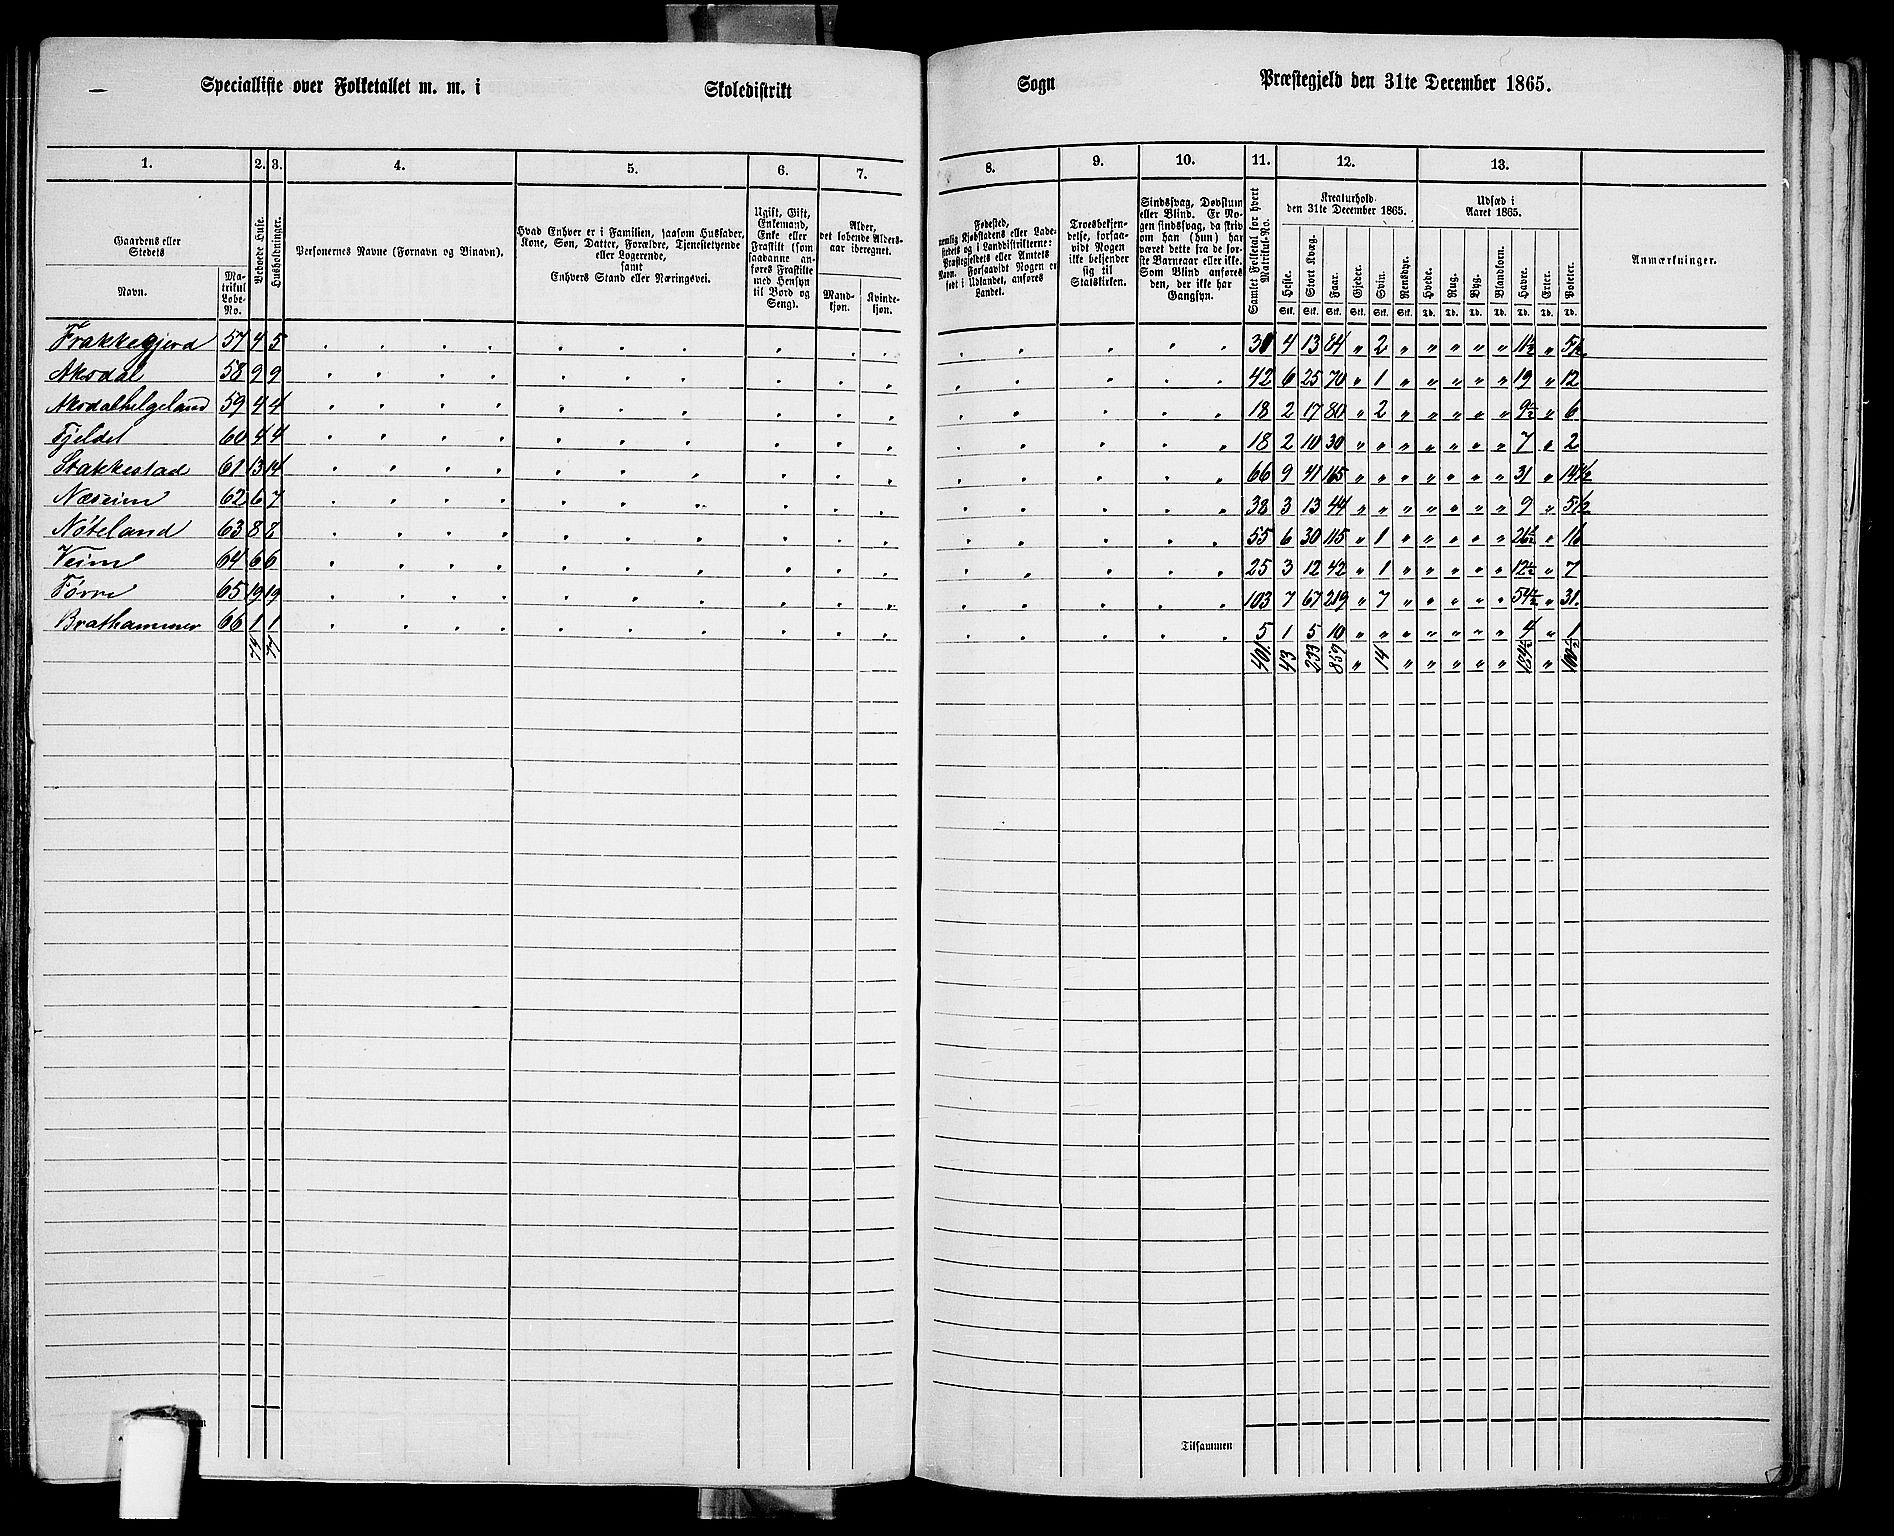 Specialliste over Folketallet m. m. i Skoledistrikt Sogn Præstegjeld den 31te December 1865.
1. 2. 3. 4. 5. 6. 7. 8. 9. 10. 11. 12. 13.
Gaardens eller Stedets
Navn.
Matrikul Løbe-No.
Beboede Huse.
Husholdninger.
Personernes Navne (Fornavn og Binavn).
Hvad Enhver er i Familien, saasom Husfader, Kone, Søn, Datter, Forældre, Tjenestetyende eller Logerende,
samt
Enhvers Stand eller Næringsvei.
Ugift, Gift, Enkemand, Enke eller Fraskilt (som saadanne anføres Fraskilte med Hensyn til Bord og Seng).
Alder, det løbende Alders-aar iberegnet.
Mandkjøn. Kvindekjøn.
Fødested, nemlig Kjøbstadens eller Ladestedets og i Landdistrikterne: Præstegjeldets eller Amtets Navn. Forsaavidt Nogen er født i Udlandet, anføres Landet.
Troesbekjendelse, forsaavidt Nogen ikke bekjender sig til Statskirken.
Sindssvag, Døvstum eller Blind. Er Nogen sindssvag, da skriv om han (hun) har været dette fra de første Barneaar eller ikke. Som Blind anføres den, der ikke har Gangsyn.
Samlet Folketal for hvert Matrikul-No.
Kreaturhold den 31te December 1865.
Heste. Stort Kvæg. Faar. Gjeder. Svin. Rensdyr.
Stk. Stk. Stk. Stk. Stk. Stk.
Udsæd i Aaret 1865.
Hvede. Rug. Byg. Blandkorn. Havre. Erter. Poteter.
Td. Td. Td. Td. Td. Td. Td.
Anmærkninger.
Frakkegjerd 57 4 5 31 4 13 84 " 2 " " " " " 11½ " 5½
Aksdal 58 9 9 42 6 25 70 " 1 " " " " " 19 " 12
Aksdalhelgeland 59 4 4 18 2 17 80 " 2 " " " " " 9½ " 6
Fjeldet 60 4 4 18 2 10 30 " " " " " " " 7 " 2
Stakkestad 61 13 14 66 9 41 165 " " " " " " " 31 " 14½
Næseim 62 6 7 38 3 13 44 " " " " " " " 9 " 5½
Nøteland 63 8 8 55 6 30 115 " 1 " " " " " 26½ " 16
Veim 64 6 6 25 3 12 42 " 1 " " " " " 12½ " 7
Førre 65 19 19 103 7 67 219 " 7 " " " " " 54½ " 31.
Brathammer 66 1 1 5 1 5 10 " " " " " " " 4 " 1
74 77 401. 43 233 859 " 14 " " " " " 184½ " 100½
Tilsammen